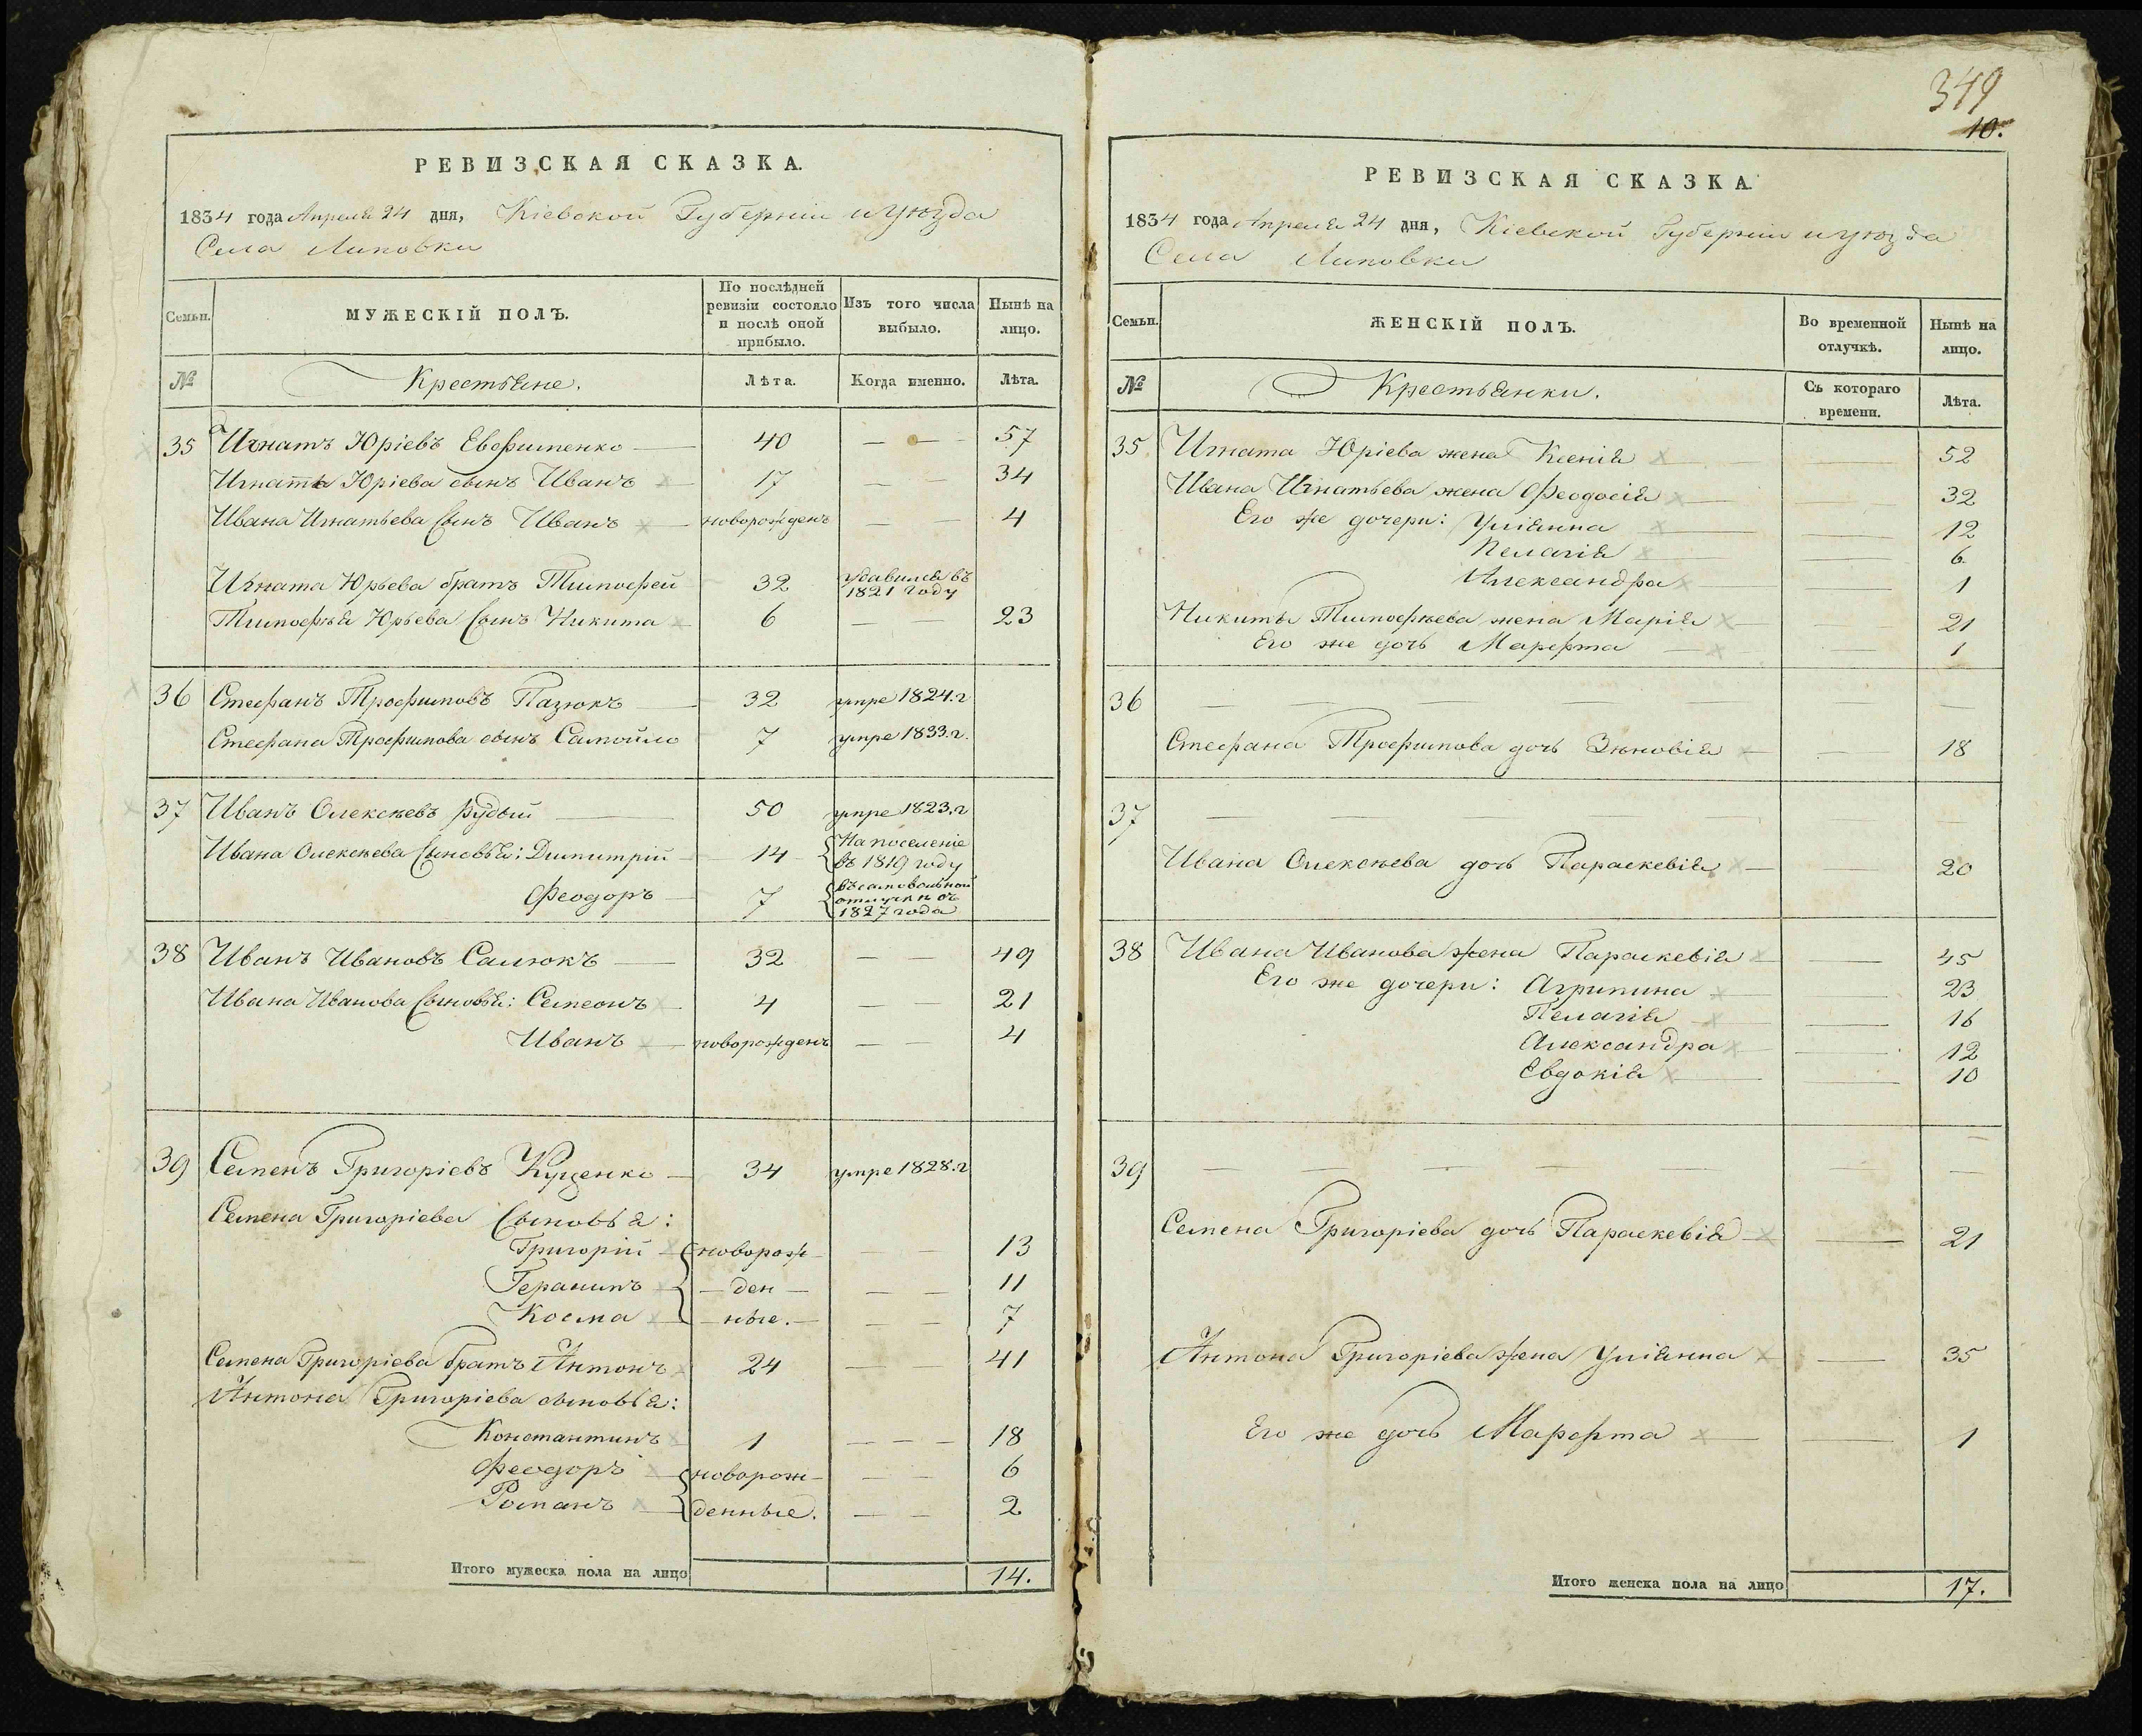 РЕВИЗСКАЯ СКАЗКА.
1834 года Апреля 24 дня, Кіевской Губерніи и уѣзда
Села Липовки
Семьи.
МУЖЕСКІЙ ПОЛЪ.
По послѣдней ревизіи состояло и послѣ оной прибыло.
Изъ того числа выбыло.
Нынѣ на лицо.
№ Крестьяне. Лѣта. Когда именно. Лѣта.
35 Игнатъ Юріевъ Евфименко 40 — — 57
Игната Юріева сынъ Иванъ 17 — — 34
Ивана Игнатьева сынъ Иванъ новорожденъ — — 4
Игната Юрьева братъ Тимофей 32 удавился въ 1821 году
Тимофѣя Юрьева сынъ Никита 6 — — 23
36 Стефанъ Трофимовъ Пазюкъ 32 умре 1824.г
Стефана Трофимова сынъ Самойло 7 умре 1833.г.
37 Иванъ Олексѣевъ Рудый 50 умре 1823.г
Ивана Олексѣева сыновья: Димитрій 14 На поселеніе въ 1819 году
Феодоръ 7 въ самовольной отлучкѣ съ 1827 года
38 Иванъ Ивановъ Салюкъ 32 — — 49
Ивана Иванова сыновья: Семеонъ 4 — — 21
Иванъ новорожденъ — — 4
39 Семенъ Григоріевъ Куценко 34 умре 1828.г
Семена Григоріева сыновья:
Григорій новорож — — 13
Герасимъ — ден — — — 11
Косма — ные. — — — 7
Семена Григоріева братъ Антонъ 24 — — 41
Антона Григоріева сыновья:
Константинъ 1 — — — 18
Феодоръ новорож — — 6
Романъ денные. — — 2
Итого мужеска пола на лицо 14.
349
10.
РЕВИЗСКАЯ СКАЗКА.
1834 года Апреля 24 дня, Кіевской Губерніи и уѣзда
Села Липовки
Семьи.
ЖЕНСКІЙ ПОЛЪ.
Во временной отлучкѣ.
Нынѣ на лицо.
№ Крестьянки. Съ котораго времени. Лѣта.
35 Игната Юріева жена Ксенія — 52
Ивана Игнатьева жена Феодосія — 32
Его же дочери: Уліянна — 12
Пелагія — 6
Александра — 1
Никиты Тимофѣева жена Марія — 21
Его же дочь Марфта — 1
36 — — — — — — —
Стефана Трофимова дочь Зѣновія — 18
37 — — — — — — —
Ивана Олексѣева дочь Параскевія — 20
38 Ивана Иванова жена Параскевія — 45
Его же дочери: Агрипина — 23
Пелагія — 16
Александра — 12
Евдокія — 10
39 — — — — — — —
Семена Григоріева дочь Параскевія — 21
Антона Григоріева жена Уліянна — 35
Его же дочь Марфта — 1
Итого женска пола на лицо 17.